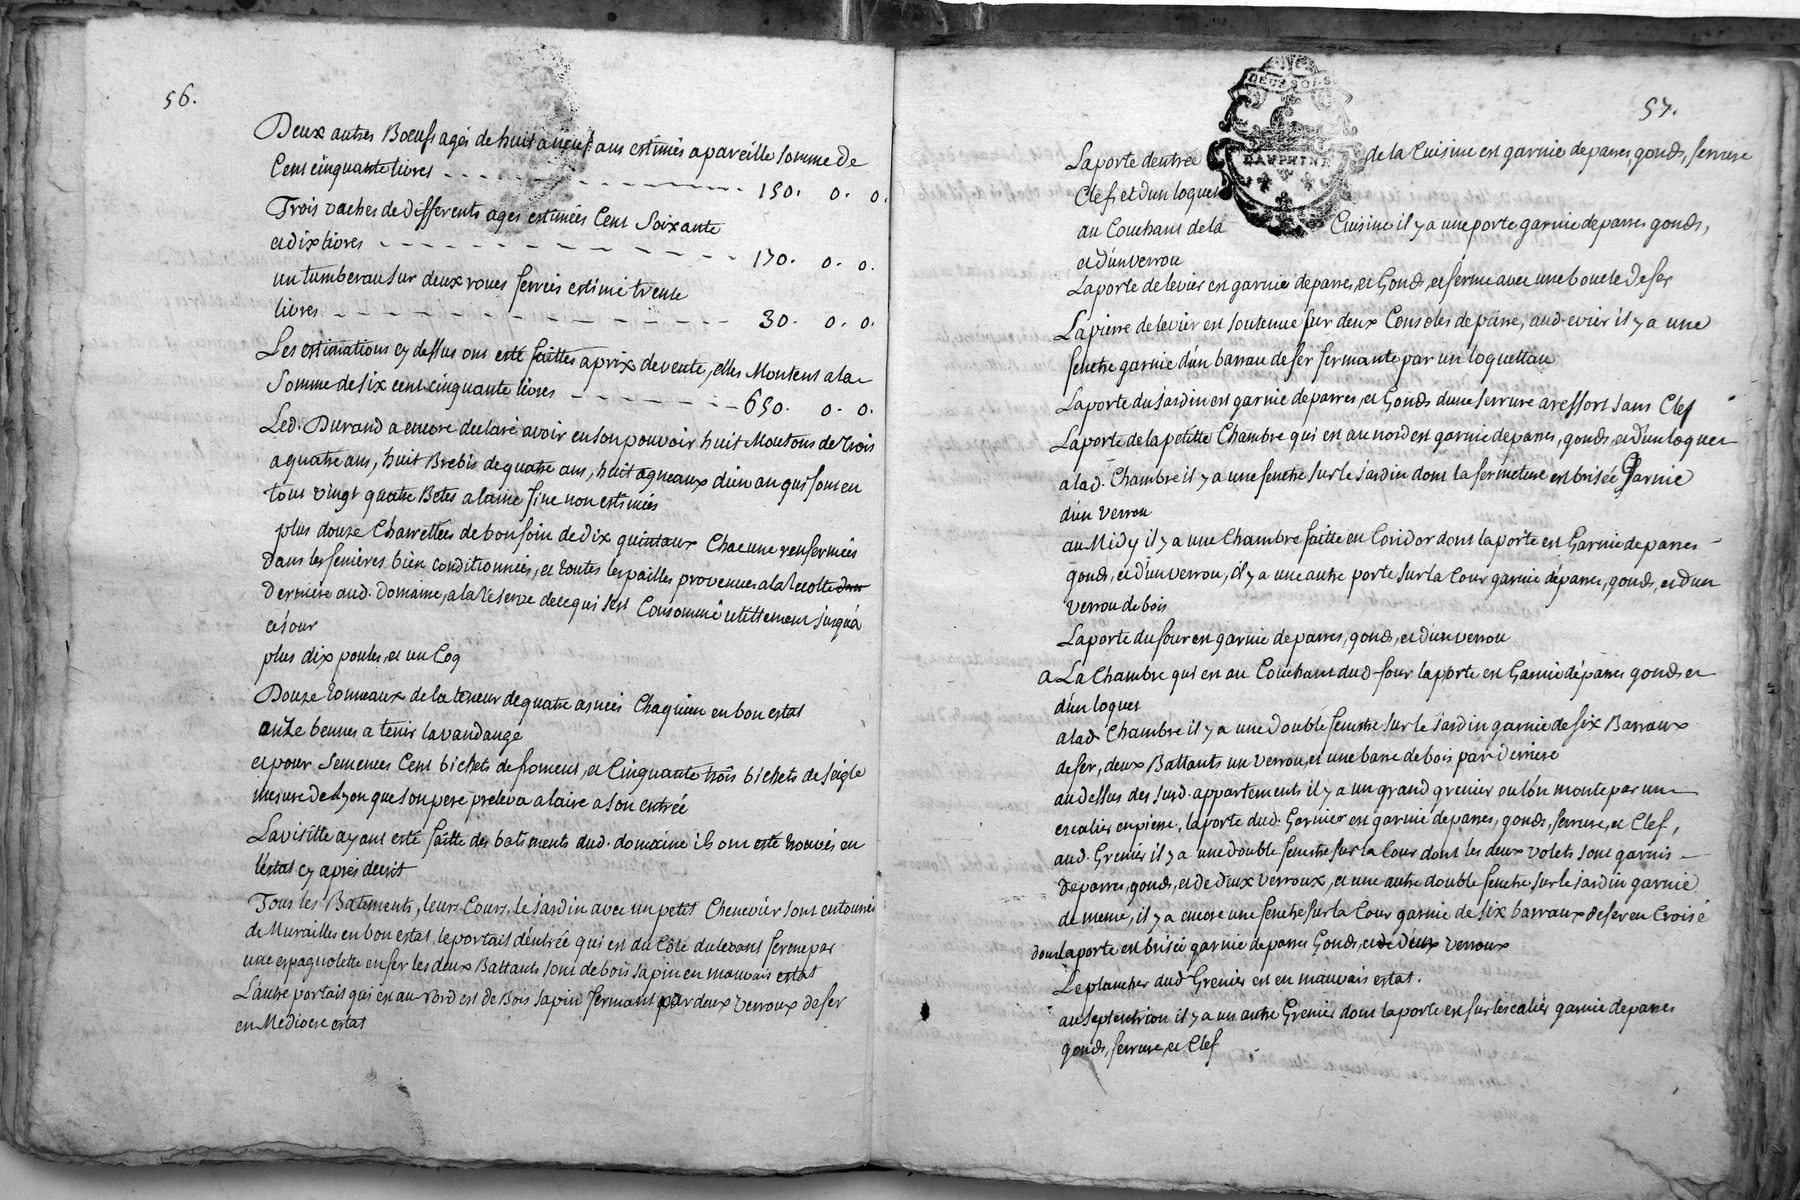 56.
Deux autres Boeufs agés de huit a neuf ans estimés a pareille somme de
Cent cinquante livres - - - - - - - - - - 150. 0. 0.
Trois vaches de differents ages estimées Cent Soixante
et dix livres - - - - - - - - - - 170. 0. 0.
un tumbereau sur deux roues ferrées estimé trente
livres - - - - - - - - - - 30. 0. 0.
Les estimations cy dessus ont esté faittes a prix de vente, elles Montent a la
Somme de six cent cinquante livres - - - - - - 650. 0. 0.
Led. Durand a encore declaré avoir en son pouvoir huit Moutons de trois
a quatre ans, huit Brebis de quatre ans, huit agneaux d'un an qui font en
tout vingt quatre Betes a laine fine non estimées
plus douze Charrettées de bon foin de dix quintaux Chacune renfermées
dans les fenières bien conditionnées, et toutes les pailles provenues a la Recolte
derniere aud. Domaine, a la reserve de ce qui s'est Consommé utillement jusqu'a
ce jour
plus dix poules, et un Coq
Douze tonneaux de la teneur de quatre asnées Chaqu'un en bon estat
onze bennes a tenir la vandange
et pour Semences Cent bichets de froment, et Cinquante trois bichets de seigle
mesure de Lyon que son pere preleva a laire a son entrée
La visitte ayant esté faitte des batiments dud. domaine ils ont esté trouvés en
l'estat cy après decrit
Tous les Batiments, leurs Cours, le jardin avec un petit Chenevier sont entourrés
de Murailles en bon estat, le portail d'entrée qui est du Côté du levant ferme par
une espagnolette en fer les deux Battants sont de bois sapin en mauvais estat
L'autre portail qui est au nord est de Bois sapin fermant par deux verroux de fer
en Mediocre estat
57.
DEUX SOLS
DAUPHINE
La porte d'entrée de la Cuisine est garnie de parres gonds, serrure
Clef, et d'un loquet
au Couchant de la Cuisine il y a une porte garnie de parres gonds,
et d'un verrou
La porte de levier est garnie de parres, et Gonds, et ferme avec une boucle de fer
La pierre de levier est soutenue sur deux Consoles de pierre, aud. evier il y a une
fenetre garnie d'un barrau de fer fermante par un loquettau
La porte du jardin est garnie de parres, et Gonds d'une serrure a ressort sans Clef
La porte de la petitte Chambre qui est au nord est garnie de parres, gonds, et d'un loquet
a lad. Chambre il y a une fenetre sur le jardin dont la fermeture est brisée Garnie
d'un verrou
au Midy il y a une Chambre faitte en Coridor dont la porte est Garnie de parres
gonds, et d'un verrou, il y a une autre porte sur la Cour garnie de parres, gonds, et d'un
verrou de bois
La porte du four est garnie de parres, gonds, et d'un verrou
a La Chambre qui est au Couchant dud. four la porte est Garnie de parres gonds et
d'un loquet
a lad. Chambre il y a une double fenetre sur le jardin garnie de six Barraux
de fer, deux Battants un verrou, et une barre de bois par derriere
au dessus des susd. appartements il y a un grand grenier ou l'on monte par un
escalier en pierre, la porte dud. Grenier est garnie de parres, gonds, serrure, et Clef,
aud. Grenier il y a une double fenetre sur la Cour dont les deux volets sont garnis
de parres, gonds, et de deux verroux, et une autre double fenetre sur le jardin garnie
de meme, il y a encore une fenetre sur la Cour garnie de six barraux de fer en Croisé
dont la porte est brisée garnie de parres Gonds, et de deux verroux
Le plancher dud. Grenier est en mauvais estat.
au septentrion il y a un autre Grenier dont la porte est sur l'escalier garnie de parres
gonds, serrure, et Clef